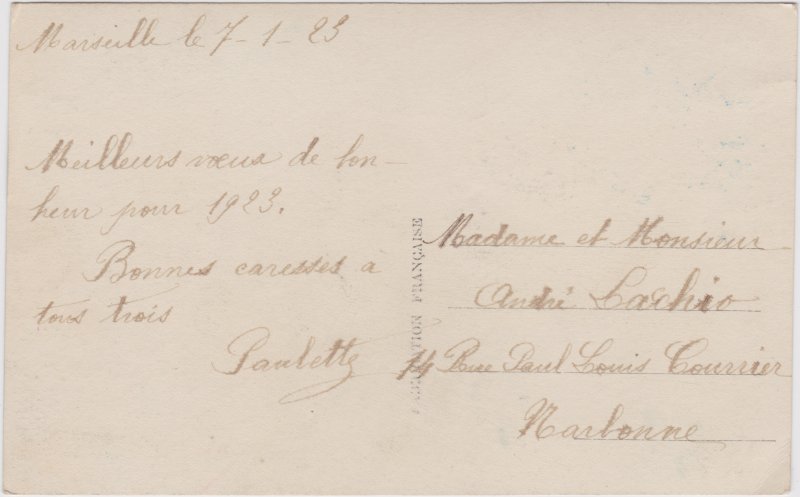 Marseille le 7-1-23
Meilleurs vœux de bon-
heur pour 1923.
Bonnes caresses a
tous trois
Paulette
FABRICATION FRANÇAISE
Madame et Monsieur
André
14 Rue Paul Louis Courrier
Narbonne